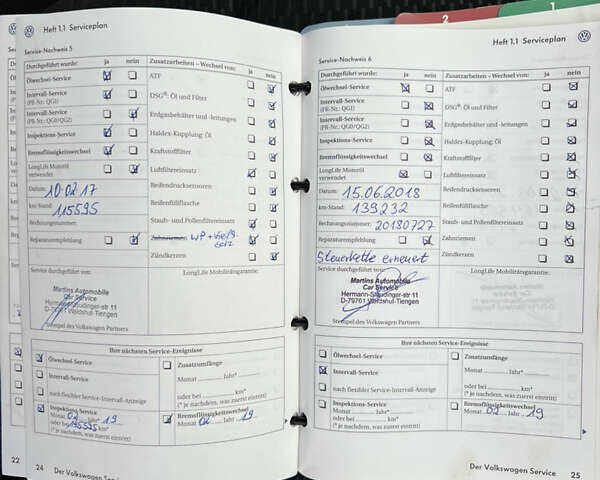 Heft 1.1 Serviceplan
Service-Nachweis 5
Durchgeführt wurde: ja nein
Zusatzarbeiten – Wechsel von: ja nein
Ölwechsel-Service
Intervall-Service
(PR-Nr.: QG1)
Intervall-Service
(PR-Nr.: QG0/QG2)
Inspektions-Service
Bremsflüssigkeitswechsel
LongLife Motoröl
verwendet
Datum: 10.02.17
km-Stand: 115595
Rechnungsnummer:
Reparaturempfehlung
ATF
DSG®: Öl und Filter
Erdgasbehälter und -leitungen
Haldex-Kupplung: Öl
Kraftstofffilter
Luftfiltereinsatz
Reifendrucksensoren
Reifenfüllflasche
Staub- und Pollenfiltereinsatz
Zahnriemen
Zündkerzen
Service durchgeführt von:
LongLife Mobilitätsgarantie:
Martins Automobile
Car Service
Hermann-Staudinger-str 11
D-79761 Waldshut-Tiengen
Stempel des Volkswagen Partners
Ihre nächsten Service-Ereignisse
Ölwechsel-Service
Intervall-Service
nach flexibler Service-Intervall-Anzeige
Inspektions-Service
Monat 02 Jahr 19
oder bei
(* je nachdem, was zuerst eintritt)
Zusatzumfänge
Monat Jahr*
oder bei km*
(* je nachdem, was zuerst eintritt)
Bremsflüssigkeitswechsel
Monat 02 Jahr 19
22
24 Der Volkswagen Service
2
1
Heft 1.1 Serviceplan
Service-Nachweis 6
Durchgeführt wurde: ja nein
Zusatzarbeiten – Wechsel von: ja nein
Ölwechsel-Service
Intervall-Service
(PR-Nr.: QG1)
Intervall-Service
(PR-Nr.: QG0/QG2)
Inspektions-Service
Bremsflüssigkeitswechsel
LongLife Motoröl
verwendet
Datum: 15.06.2018
km-Stand: 139232
Rechnungsnummer: 20180727
Reparaturempfehlung
Steuerkette erneuert
ATF
DSG®: Öl und Filter
Erdgasbehälter und -leitungen
Haldex-Kupplung: Öl
Kraftstofffilter
Luftfiltereinsatz
Reifendrucksensoren
Reifenfüllflasche
Staub- und Pollenfiltereinsatz
Zahnriemen
Zündkerzen
Service durchgeführt von:
LongLife Mobilitätsgarantie:
Martins Automobile
Car Service
Hermann-Staudinger-str 11
D-79761 Waldshut-Tiengen
Stempel des Volkswagen Partners
Ihre nächsten Service-Ereignisse
Ölwechsel-Service
Intervall-Service
nach flexibler Service-Intervall-Anzeige
Inspektions-Service
Monat Jahr*
oder bei km*
(* je nachdem, was zuerst eintritt)
Zusatzumfänge
Monat Jahr*
oder bei km*
(* je nachdem, was zuerst eintritt)
Bremsflüssigkeitswechsel
Monat 02 Jahr 19
Der Volkswagen Service 25